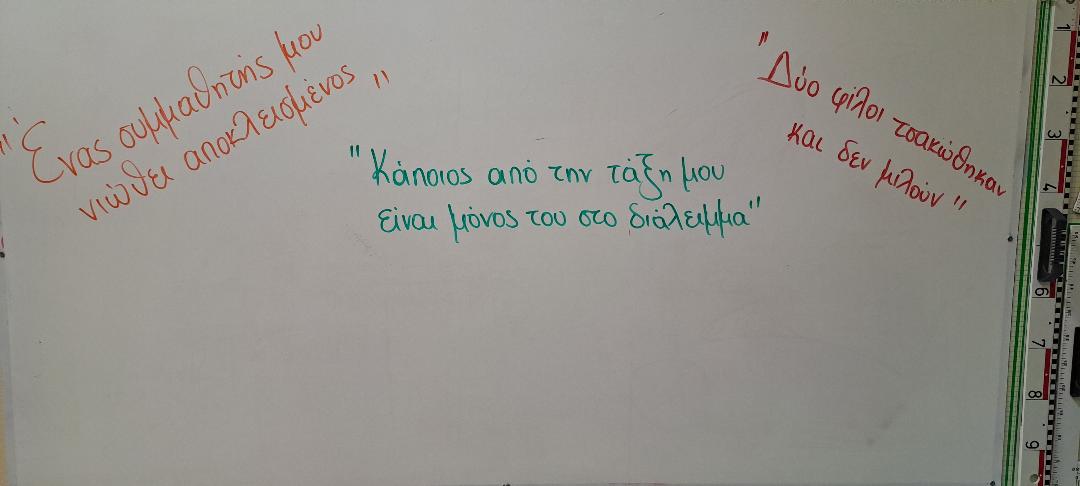 "Ένας συμμαθητής μου
νιώθει αποκλεισμένος"
"Κάποιος από την τάξη μου
είναι μόνος του στο διάλειμμα"
"Δύο φίλοι τσακώθηκαν
και δεν μιλούν"
1
2
3
4
6
7
8
9